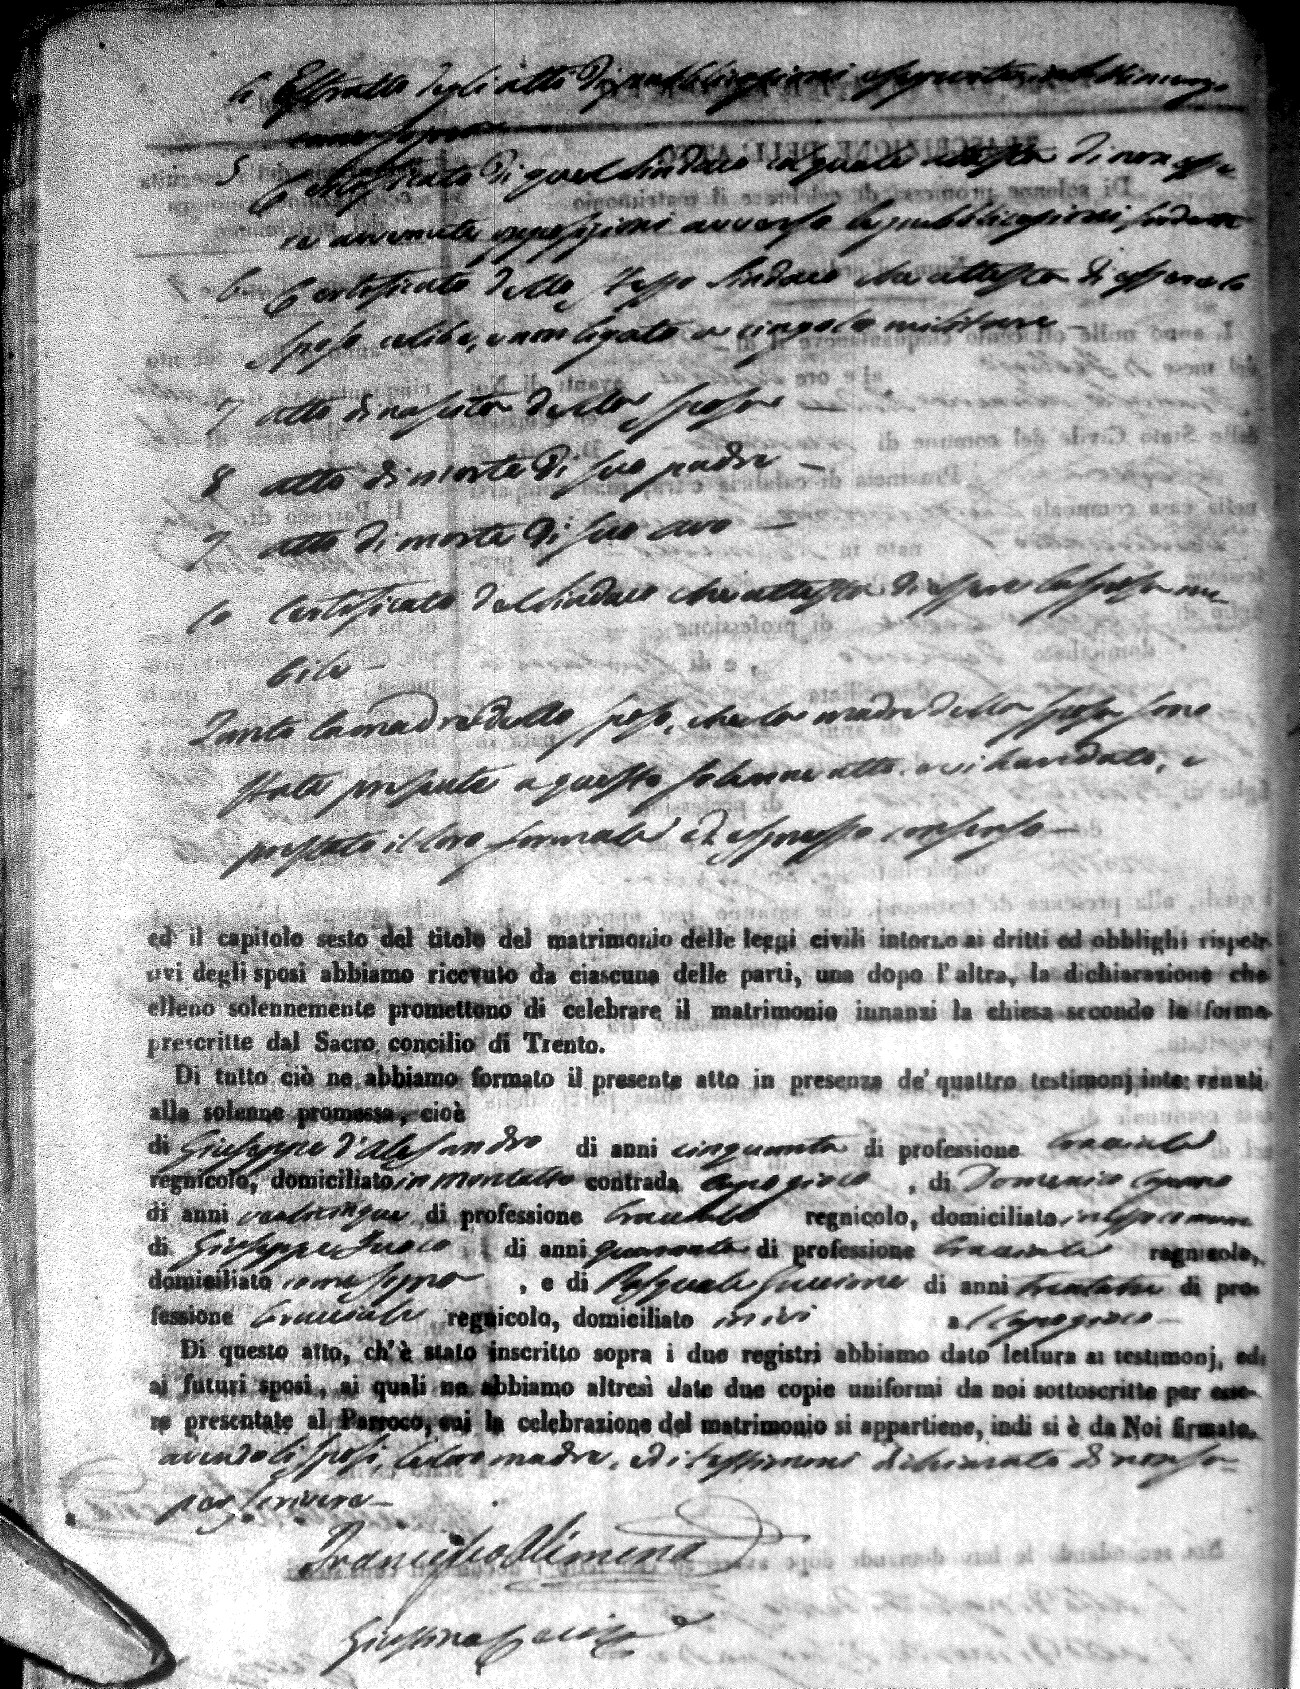 4 Estratto degli atti di pubblicazioni
come sopra
5 Certificato di quel Sindaco il quale attesta di non esse
re avvenute opposizioni avverso le pubblicazioni sudette
6 Certificato dello stesso Sindaco che attesta di essere lo
sposo celibe, e non legato a cingolo militare
7 atto di nascita della sposa —
8 atto di morte di suo padre —
9 atto di morte di suo avo —
10 Certificato del Sindaco che attesta di essere la sposa nu-
bile —
Tanto la madre dello sposo, che la madre della sposa sono
state presente a questo solenne atto e vi han dato, e
prestato il loro formale ed espresso consenso —
ed il capitolo sesto del titolo del matrimonio delle leggi civili intorno ai dritti ed obblighi rispet-
tivi degli sposi abbiamo ricevuto da ciascuna delle parti, una dopo l'altra, la dichiarazione che
elleno solennemente promettono di celebrare il matrimonio innanzi la chiesa secondo le forme
prescritte dal Sacro concilio di Trento.
Di tutto ciò ne abbiamo formato il presente atto in presenza de' quattro testimonj intervenuti
alla solenne promessa, cioè
di Giuseppe d'Alesandro di anni cinquanta di professione bracciale
regnicolo, domiciliato in Montalto contrada , di Domenico
di anni venticinque di professione bracciale regnicolo, domiciliato in
di Giuseppe di anni quaranta di professione bracciale regnicolo,
domiciliato come sopra , e di Pasquale di anni di pro-
fessione bracciale regnicolo, domiciliato ivi
Di questo atto, ch'è stato inscritto sopra i due registri abbiamo dato lettura ai testimonj, ed
ai futuri sposi, ai quali ne abbiamo altresì date due copie uniformi da noi sottoscritte per esse-
re presentate al Parroco, cui la celebrazione del matrimonio si appartiene, indi si è da Noi firmato.
avendo li sposi, le loro madre, ed i testimoni dichiarato di non sa-
per scrivere —
Francesco Alimena